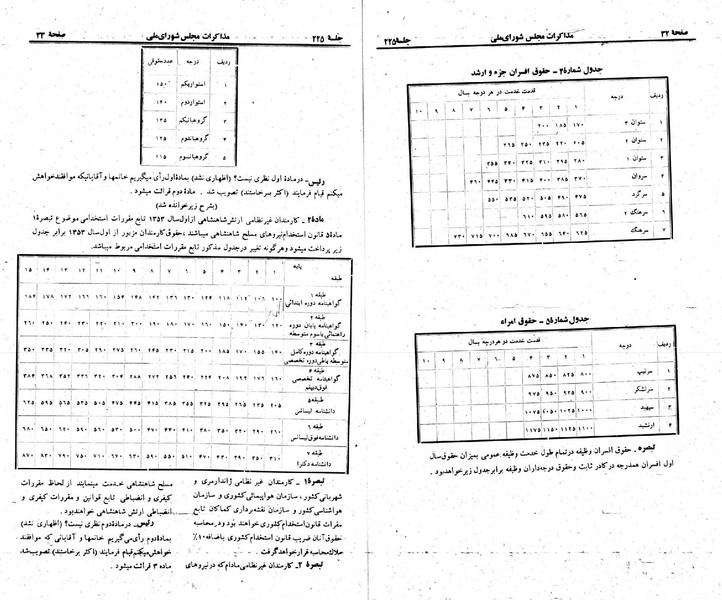 صفحهٔ ۳۲ مذاکرات مجلس شورای ملی جلسهٔ ۲۲۵
جدول شمارهٔ ۴ - حقوق افسران جزء و ارشد
ردیف درجه قدمت خدمت در هر درجه بسال
۱ ۲ ۳ ۴ ۵ ۶ ۷ ۸ ۹ ۱۰
۱ ستوان ۳ ۱۷۰ ۱۸۵ ۲۰۰
۲ ستوان ۲ ۲۰۵ ۲۲۰ ۲۳۵ ۲۵۰ ۲۶۵
۳ ستوان ۱ ۲۸۰ ۲۹۵ ۳۱۰ ۳۲۵ ۳۴۰ ۳۵۵
۴ سروان ۳۷۰ ۳۸۵ ۴۰۰ ۴۱۵ ۴۳۰ ۴۴۵ ۴۱۰
۵ سرگرد ۴۷۵ ۴۹۰ ۵۰۵ ۵۲۰ ۵۳۵ ۵۵۰
۶ سرهنگ ۲ ۵۶۵ ۵۸۰ ۵۹۵ ۶۱۰
۷ سرهنگ ۶۲۵ ۶۴۰ ۶۵۵ ۶۷۰ ۶۸۵ ۷۰۰ ۷۱۵ ۷۳۰
جدول شمارهٔ ۵ - حقوق امراء
ردیف درجه قدمت خدمت در هر درجه بسال
۱ ۲ ۳ ۴ ۵ ۶ ۷ ۸ ۹ ۱۰
۱ سرتیپ ۸۰۰ ۸۲۵ ۸۵۰ ۸۷۵
۲ سرلشکر ۹۰۰ ۹۲۵ ۹۵۰ ۹۷۵
۳ سپهبد ۱۰۰۰ ۱۰۲۵ ۱۰۵۰ ۱۰۷۵
۴ ارتشبد ۱۱۰۰ ۱۱۲۵ ۱۱۵۰ ۱۱۷۵
تبصره . حقوق افسران وظیفه در تمام طول خدمت وظیفه عمومی بمیزان حقوق سال
اول افسران همدرجه در کادر ثابت وحقوق درجه‌داران وظیفه برابر جدول زیر خواهد بود .
جلسهٔ ۲۲۵ مذاکرات مجلس شورای ملی صفحهٔ ۳۳
ردیف درجه عدد حقوقی
۱ استواریکم ۱۵۰
۲ استواردوم ۱۴۰
۳ گروهبانیکم ۱۳۵
۴ گروهباندوم ۱۲۵
۵ گروهبانسوم ۱۱۵
رئیس- درمادهٔ اول نظری نیست؟ (اظهاری نشد) بمادهٔ اول رأی میگیریم خانمها و آقایانیکه موافقند خواهش
میکنم قیام فرمایند (اکثر برخاستند) تصویب شد . مادهٔ دوم قرائت میشود .
(بشرح زیر خوانده شد)
مادهٔ ۲- کارمندان غیرنظامی ارتش شاهنشاهی از اول سال ۱۳۵۳ تابع مقررات استخدامی موضوع تبصرهٔ ۱
مادهٔ ۵ قانون استخدام نیروهای مسلح شاهنشاهی میباشند، حقوق کارمندان مزبور از اول سال ۱۳۵۳ برابر جدول
زیر پرداخت میشود وهرگونه تغییر در جدول مذکور تابع مقررات استخدامی مربوط میباشد.
پایه طبقه ۱ ۲ ۳ ۴ ۵ ۶ ۷ ۸ ۹ ۱۰ ۱۱ ۱۲ ۱۳ ۱۴ ۱۵
طبقه ۱ گواهینامه دوره ابتدائی ۱۰۰ ۱۰۶ ۱۱۲ ۱۱۸ ۱۲۴ ۱۳۰ ۱۳۶ ۱۴۲ ۱۴۸ ۱۵۴ ۱۶۰ ۱۶۶ ۱۷۲ ۱۷۸ ۱۸۴
طبقه ۲ گواهینامه پایان دوره راهنمائی یاسوم متوسطه ۱۲۰ ۱۳۰ ۱۴۰ ۱۵۰ ۱۶۰ ۱۷۰ ۱۸۰ ۱۹۰ ۲۰۰ ۲۱۰ ۲۲۰ ۲۳۰ ۲۴۰ ۲۵۰ ۲۶۰
طبقه ۳ گواهینامه دوره کامل متوسطه یاطی دوره تخصصی ۱۴۰ ۱۵۵ ۱۷۰ ۱۸۵ ۲۰۰ ۲۱۵ ۲۳۰ ۲۴۵ ۲۶۰ ۲۷۵ ۲۹۰ ۳۰۵ ۳۲۰ ۳۳۵ ۳۵۰
طبقه ۴ گواهینامه تخصصی فوق دیپلم ۱۶۰ ۱۷۶ ۱۹۲ ۲۰۸ ۲۲۴ ۲۴۰ ۲۵۶ ۲۷۲ ۲۸۸ ۳۰۴ ۳۲۰ ۳۳۶ ۳۵۲ ۳۶۸ ۳۸۴
طبقه ۵ دانشنامه لیسانس ۲۰۵ ۲۳۵ ۲۶۵ ۲۹۵ ۳۲۵ ۳۵۵ ۳۸۵ ۴۱۵ ۴۴۵ ۴۷۵ ۵۰۵ ۵۳۵ ۵۶۵ ۵۹۵ ۶۲۵
طبقه ۶ دانشنامه فوق لیسانس ۲۶۰ ۲۹۰ ۳۲۰ ۳۵۰ ۳۸۰ ۴۱۰ ۴۴۰ ۴۷۰ ۵۰۰ ۵۳۰ ۵۶۰ ۵۹۰ ۶۲۰ ۶۵۰ ۶۸۰
طبقه ۷ دانشنامه دکترا ۳۱۰ ۳۵۰ ۳۹۰ ۴۳۰ ۴۷۰ ۵۱۰ ۵۵۰ ۵۹۰ ۶۳۰ ۶۷۰ ۷۱۰ ۷۵۰ ۷۹۰ ۸۳۰ ۸۷۰
تبصرهٔ ۱ - کارمندان غیر نظامی ژاندارمری و
شهربانی کشور ، سازمان هواپیمائی کشوری و سازمان
هواشناسی کشور و سازمان نقشه‌برداری کماکان تابع
مقررات قانون استخدام کشوری خواهند بود و در محاسبه
حقوق آنان ضریب قانون استخدام کشوری باضافه ۱۰٪
ملاک محاسبه قرار خواهد گرفت .
تبصرهٔ ۲- کارمندان غیرنظامی مادام که در نیروهای
مسلح شاهنشاهی خدمت مینمایند از لحاظ مقررات
کیفری و انضباطی تابع قوانین و مقررات کیفری و
انضباطی ارتش شاهنشاهی خواهند بود .
رئیس- درمادهٔ دوم نظری نیست؟ (اظهاری نشد)
بمادهٔ دوم رأی می‌گیریم خانمها و آقایانی که موافقند
خواهش میکنم قیام فرمایند (اکثر برخاستند) تصویب شد
ماده ۳ قرائت میشود .